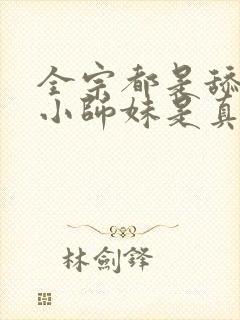 全宗都是舔
小師妹是真
林劍鋒